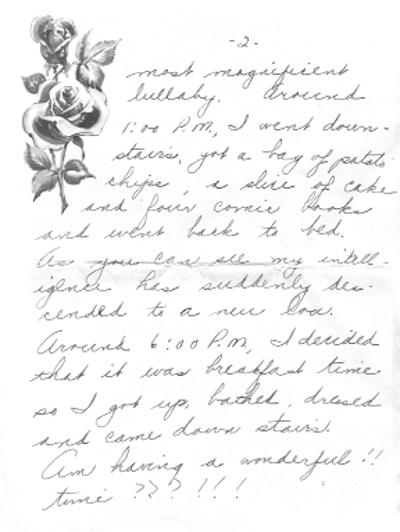 -2-
most magnificent
lullaby. Around
1:00 P.M, I went down-
stairs, got a bag of potato
chips, a slice of cake
and four comic books
and went back to bed.
As you can see my intell-
igence has suddenly des-
cended to a new low.
Around 6:00 P.M, I decided
that it was breakfast time
so I got up, bathed, dressed
and came down stairs.
Am having a wonderful !!
time ???!!!